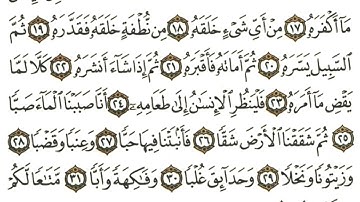 مَآ أَكْفَرَهُۥ ١٧ مِنْ أَىِّ شَىْءٍ خَلَقَهُۥ ١٨ مِن نُّطْفَةٍ خَلَقَهُۥ فَقَدَّرَهُۥ ١٩ ثُمَّ
ٱلسَّبِيلَ يَسَّرَهُۥ ٢٠ ثُمَّ أَمَاتَهُۥ فَأَقْبَرَهُۥ ٢١ ثُمَّ إِذَا شَآءَ أَنشَرَهُۥ ٢٢ كَلَّا لَمَّا
يَقْضِ مَآ أَمَرَهُۥ ٢٣ فَلْيَنظُرِ ٱلْإِنسَٰنُ إِلَىٰ طَعَامِهِۦٓ ٢٤ أَنَّا صَبَبْنَا ٱلْمَآءَ صَبًّا
٢٥ ثُمَّ شَقَقْنَا ٱلْأَرْضَ شَقًّا ٢٦ فَأَنۢبَتْنَا فِيهَا حَبًّا ٢٧ وَعِنَبًا وَقَضْبًا ٢٨
وَزَيْتُونًا وَنَخْلًا ٢٩ وَحَدَآئِقَ غُلْبًا ٣٠ وَفَٰكِهَةً وَأَبًّا ٣١ مَّتَٰعًا لَّكُمْ